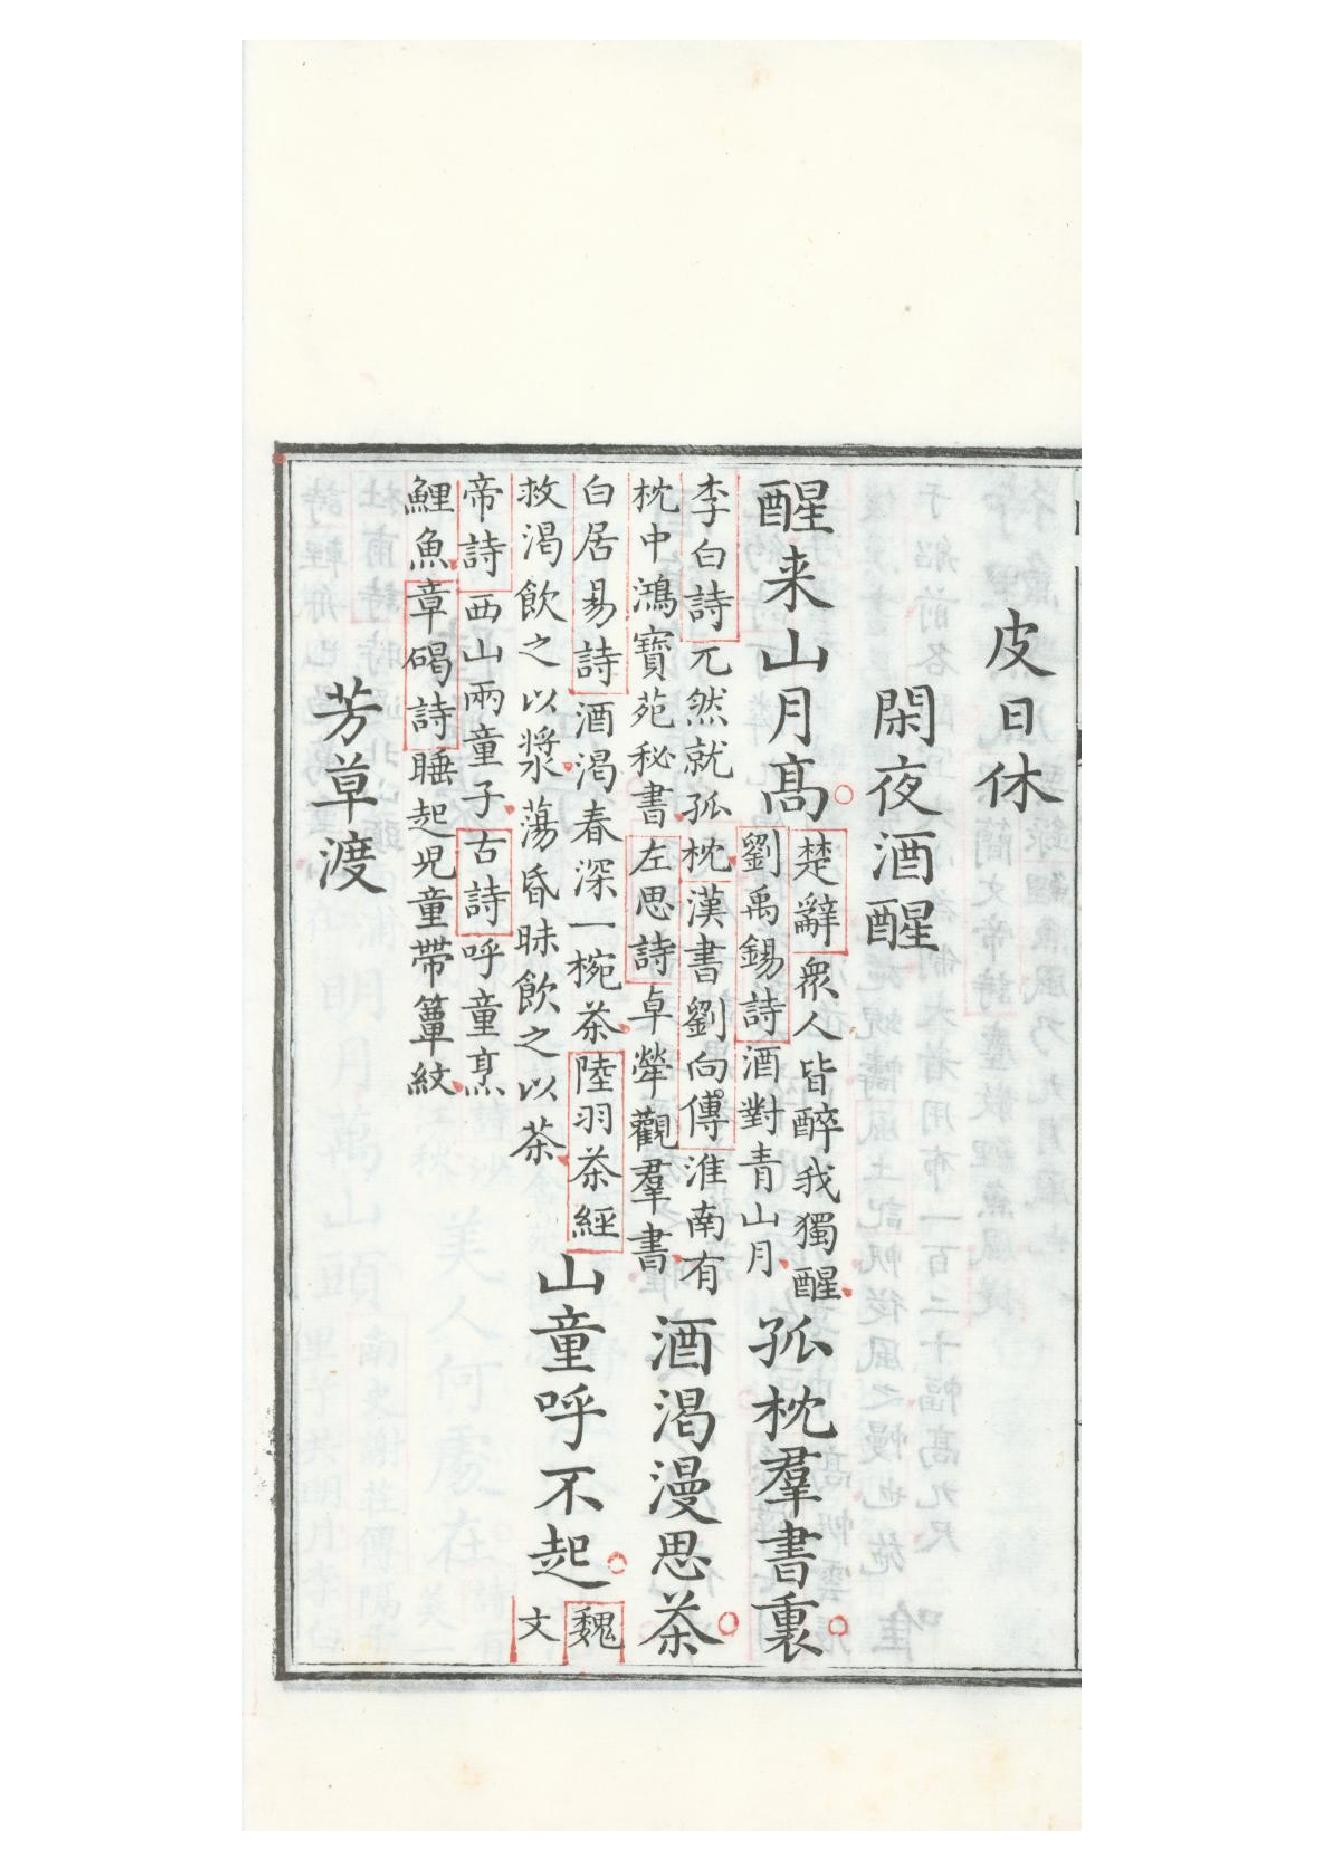 皮日休
閑夜酒醒
醒来山月高
楚辭衆人皆醉我獨醒
劉禹錫詩酒對青山月
孤枕羣書裏
李白詩兀然就孤枕漢書劉向傳淮南有
枕中鴻寶苑秘書左思詩卓犖觀羣書
酒渴漫思茶
白居易詩酒渴春深一椀茶陸羽茶經
救渴飲之以漿蕩昏昧飲之以茶
山童呼不起
魏
文
帝詩西山兩童子古詩呼童烹
鯉魚章碣詩睡起児童帶簟紋
芳草渡